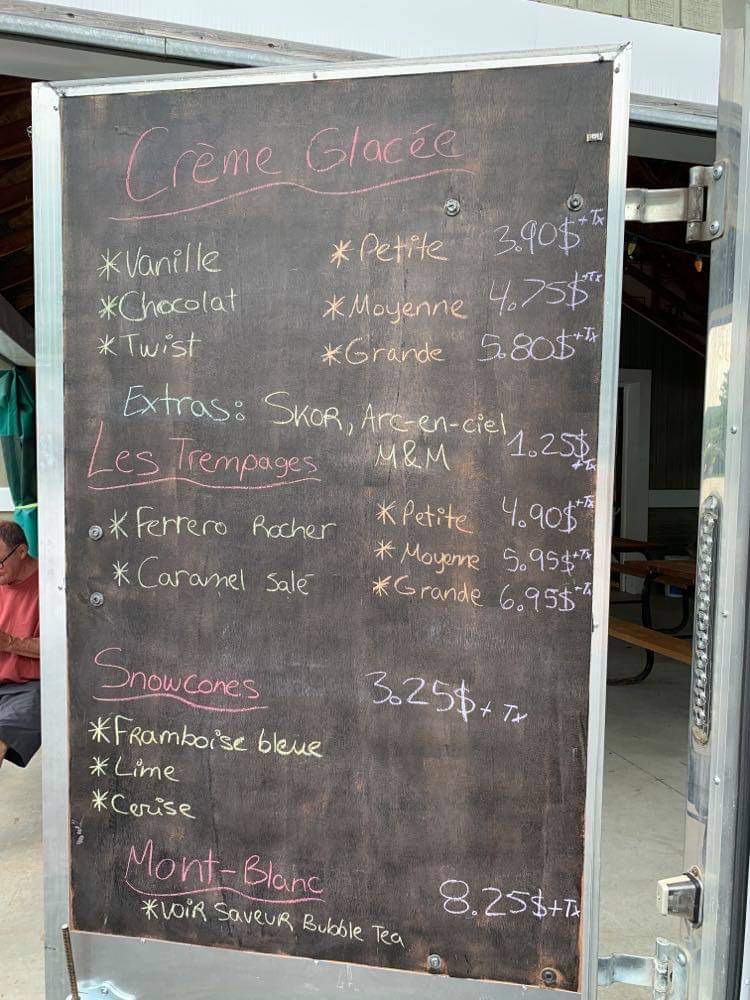 Crème Glacée
*Vanille *Petite 3.90$+Tx
*Chocolat *Moyenne 4.75$+Tx
*Twist *Grande 5.80$+Tx
Extras: SKOR, Arc-en-ciel
M&M 1.25$+Tx
Les Trempages
*Ferrero Rocher *Petite 4.90$+Tx
*Caramel salé *Moyenne 5.95$+Tx
*Grande 6.95$+Tx
Snowcones 3.25$+Tx
*Framboise bleue
*Lime
*Cerise
Mont-Blanc 8.25$+Tx
*VOIR SAVEUR Bubble Tea